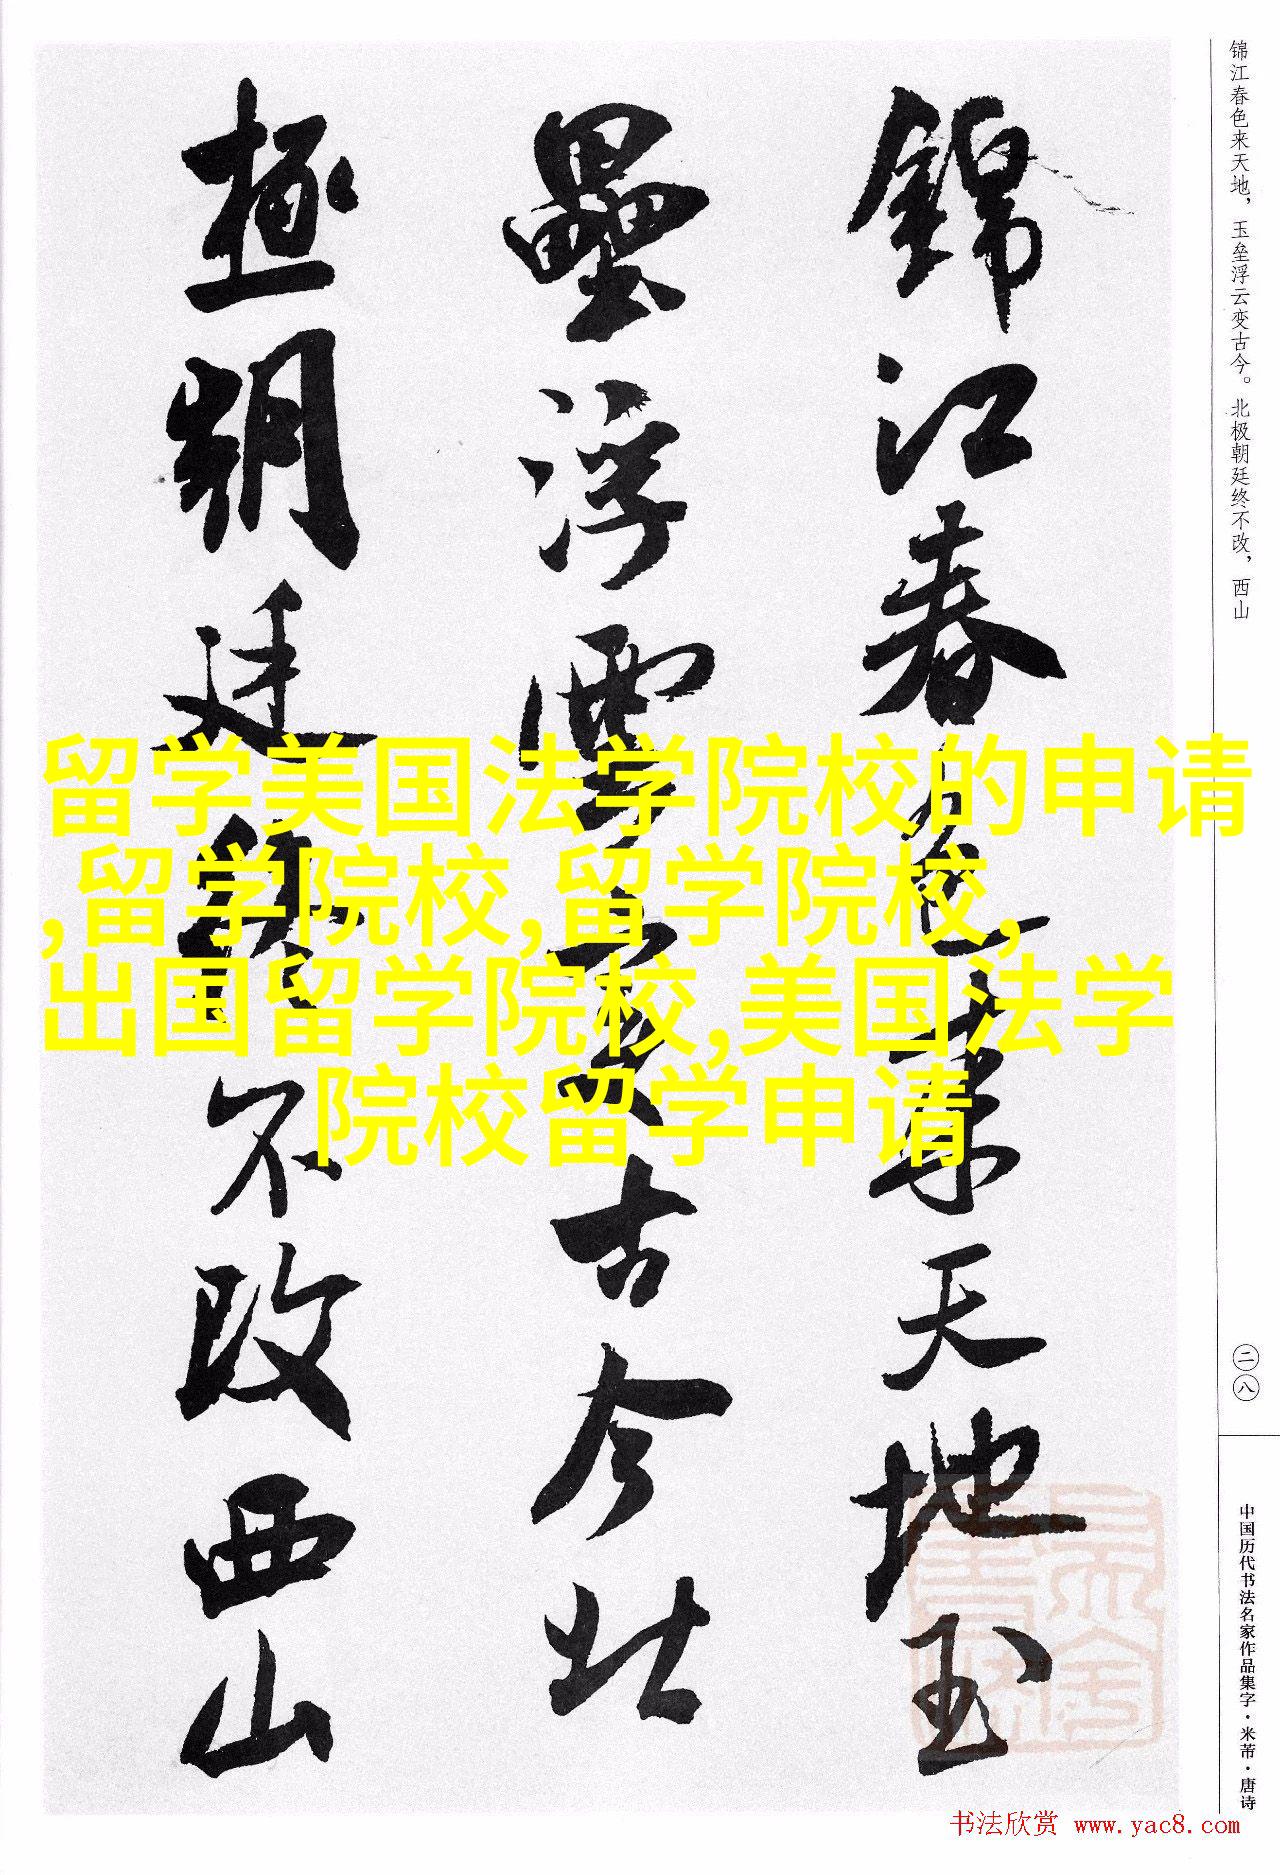 锦江春色来天地，玉垒浮云变古今。北极朝廷终不改，西山
錦江春色來天地玉
壘浮雲變古今北
極朝廷終不改西山
留学美国法学院校的申请
,留学院校,留学院校,
出国留学院校,美国法学
院校留学申请
二八
中国历代书法名家作品集字·米芾·唐诗
书法欣赏 www.yac8.com